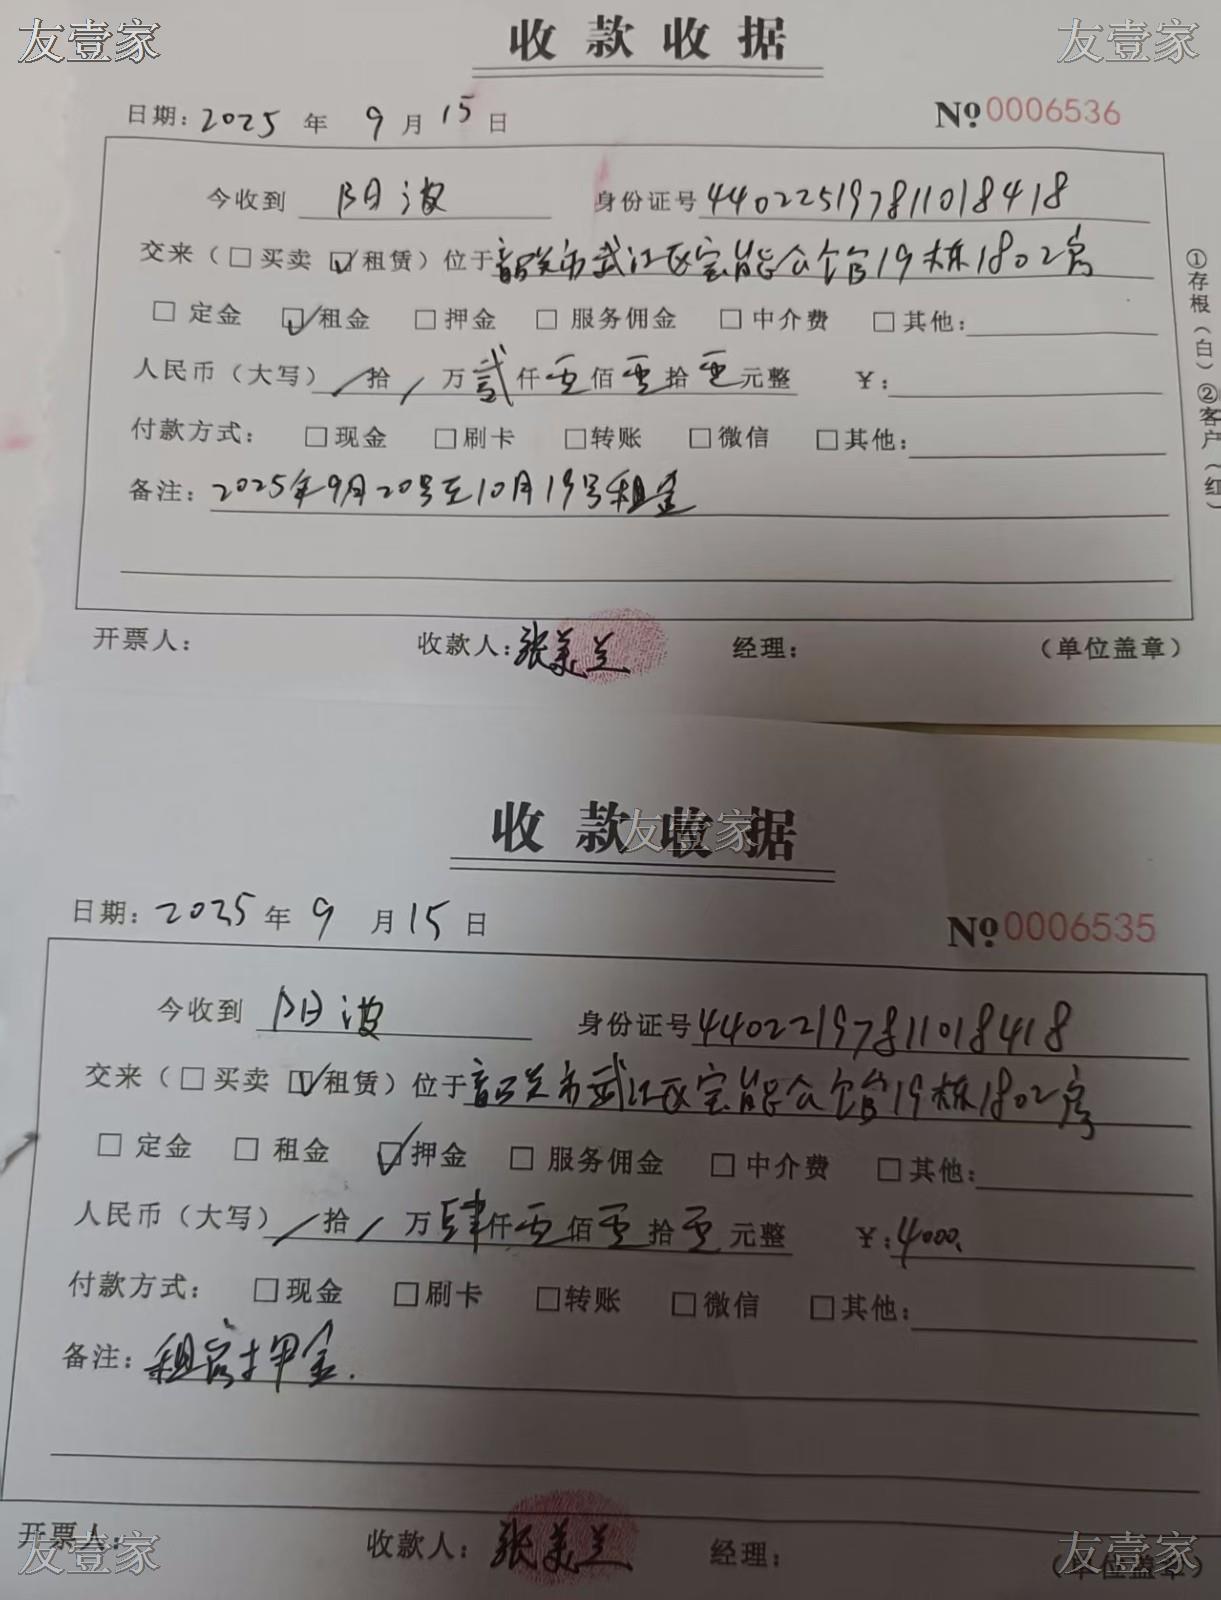 友壹家 友壹家
收款收据
日期：2025 年 9 月 15 日 Nº 0006536
今收到 阳波 身份证号 440225197811018418
交来（□买卖 ☑租赁）位于韶关市武江区宝能公馆19栋1802房
□ 定金 ☑租金 □ 押金 □ 服务佣金 □ 中介费 □ 其他：
人民币（大写） / 拾 / 万 贰 仟 零 佰 零 拾 零 元整 ￥：
付款方式： □现金 □刷卡 □转账 □微信 □其他：
备注：2025年9月20号至10月19号租金
开票人： 收款人：张美兰 经理： （单位盖章）
①存根（白）②客户（红）
收款收据
友壹家
日期：2025 年 9 月 15 日 Nº 0006535
今收到 阳波 身份证号 44022197811018418
交来（□买卖 ☑租赁）位于韶关市武江区宝能公馆19栋1802房
□ 定金 □ 租金 ☑押金 □ 服务佣金 □ 中介费 □ 其他：
人民币（大写） / 拾 / 万 肆 仟 零 佰 零 拾 零 元整 ￥：4000.
付款方式： □现金 □刷卡 □转账 □微信 □其他：
备注：租房押金.
开票人： 收款人：张美兰 经理： （单位盖章）
友壹家 友壹家